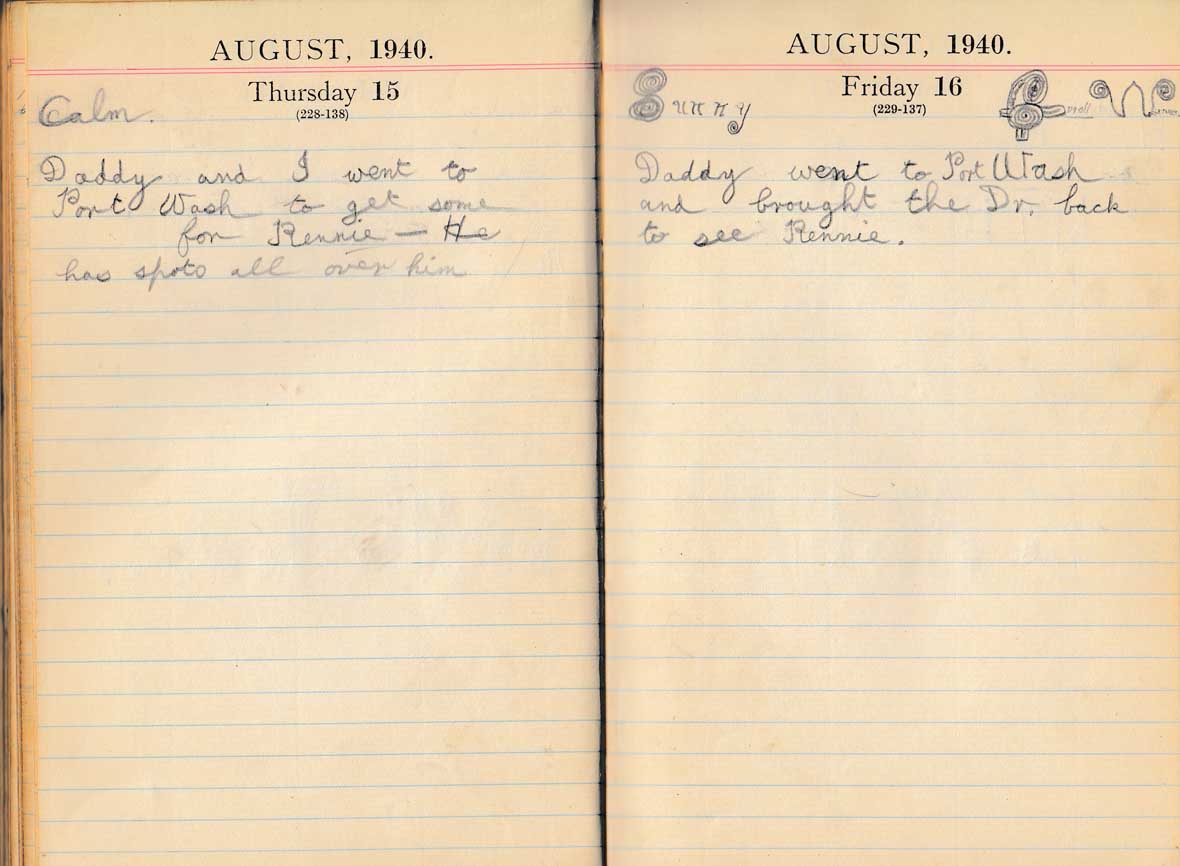 AUGUST, 1940.
Thursday 15
(228-138)
Calm.
Daddy and I went to
Port Wash to get some
for Rennie — He
has spots all over him
AUGUST, 1940.
Friday 16
(229-137)
Sunny
Daddy went to Port Wash
and brought the Dr. back
to see Rennie.